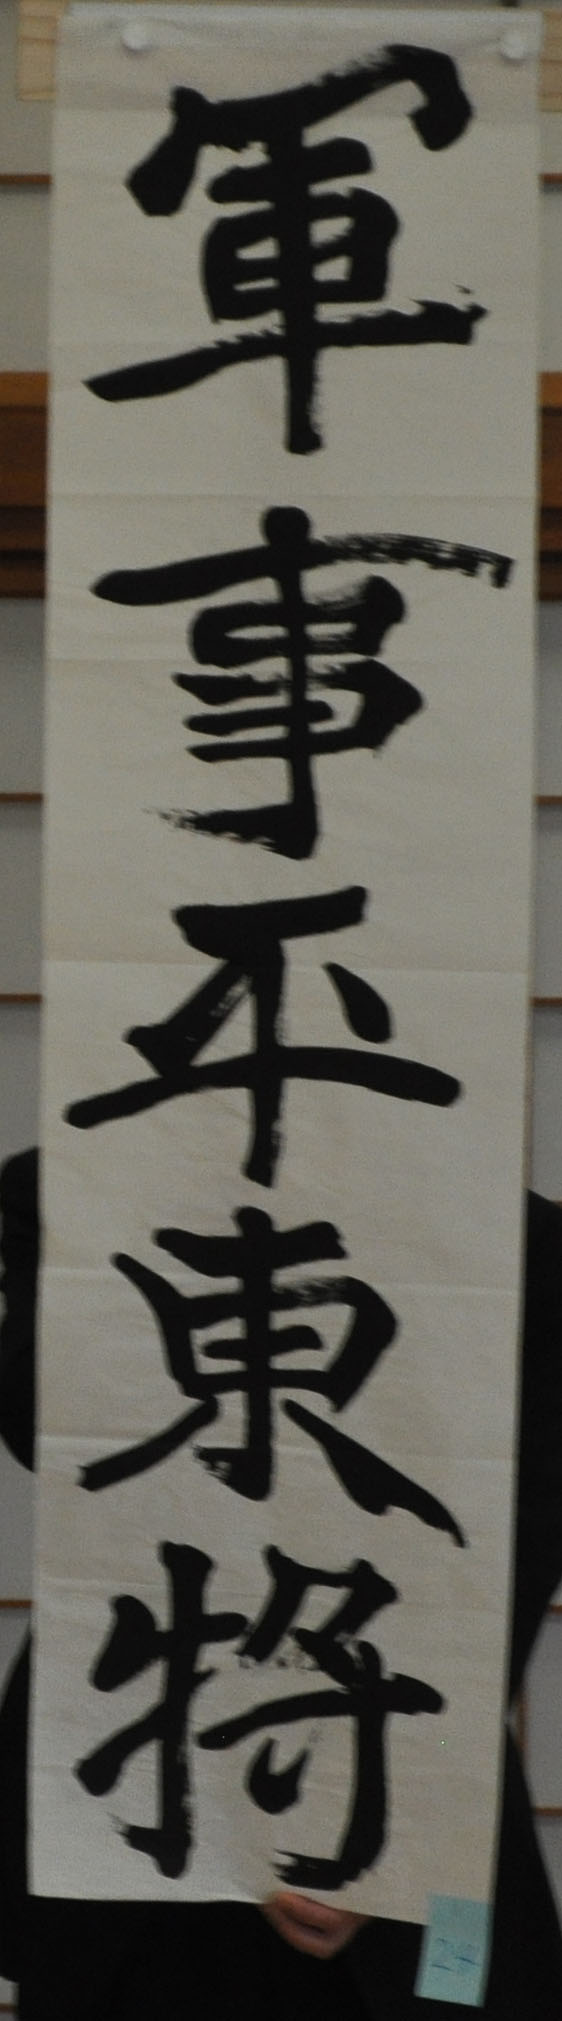 軍事平東将
24